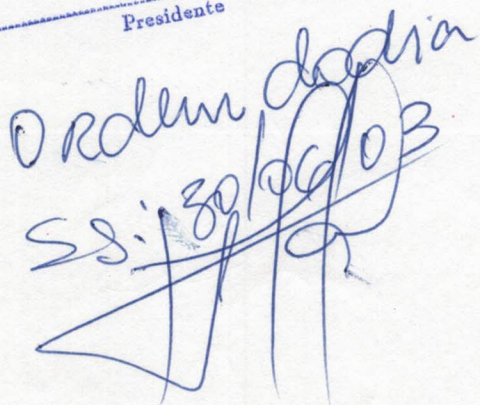 Presidente
Ordem do dia
SS: 30/06/03